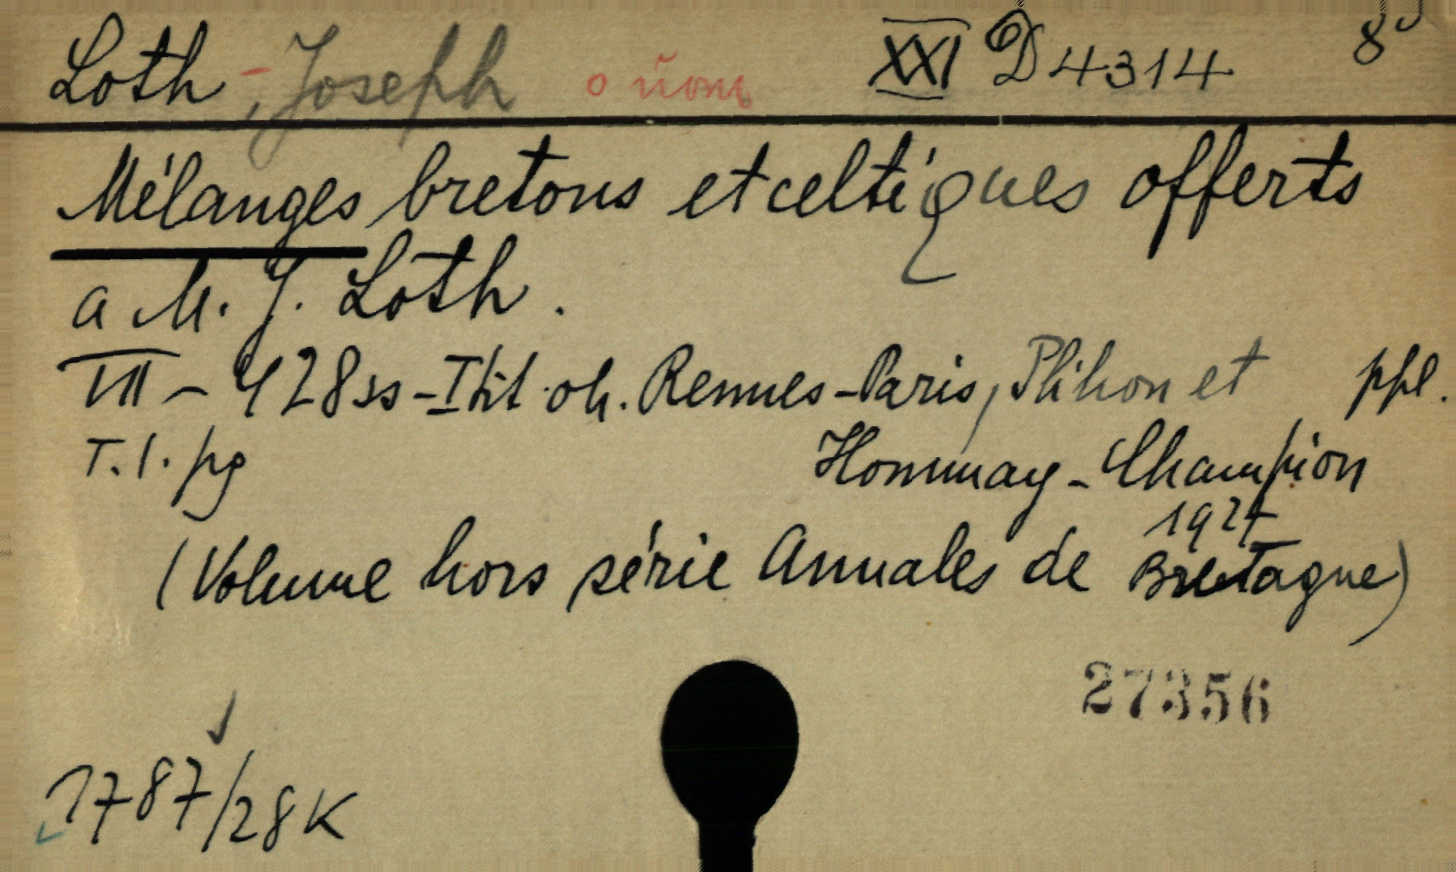 Loth, Joseph o ňom XXI D 4314 8°
Mélanges bretons et celtiques offerts
a M. J. Loth.
VII - 428 ss - Itit. ob. Rennes - Paris, Plihon et ppl.
T. l. pg Hommay - Champion
1927
(Volume hors série Annales de Bretagne)
27356
1787/28 K